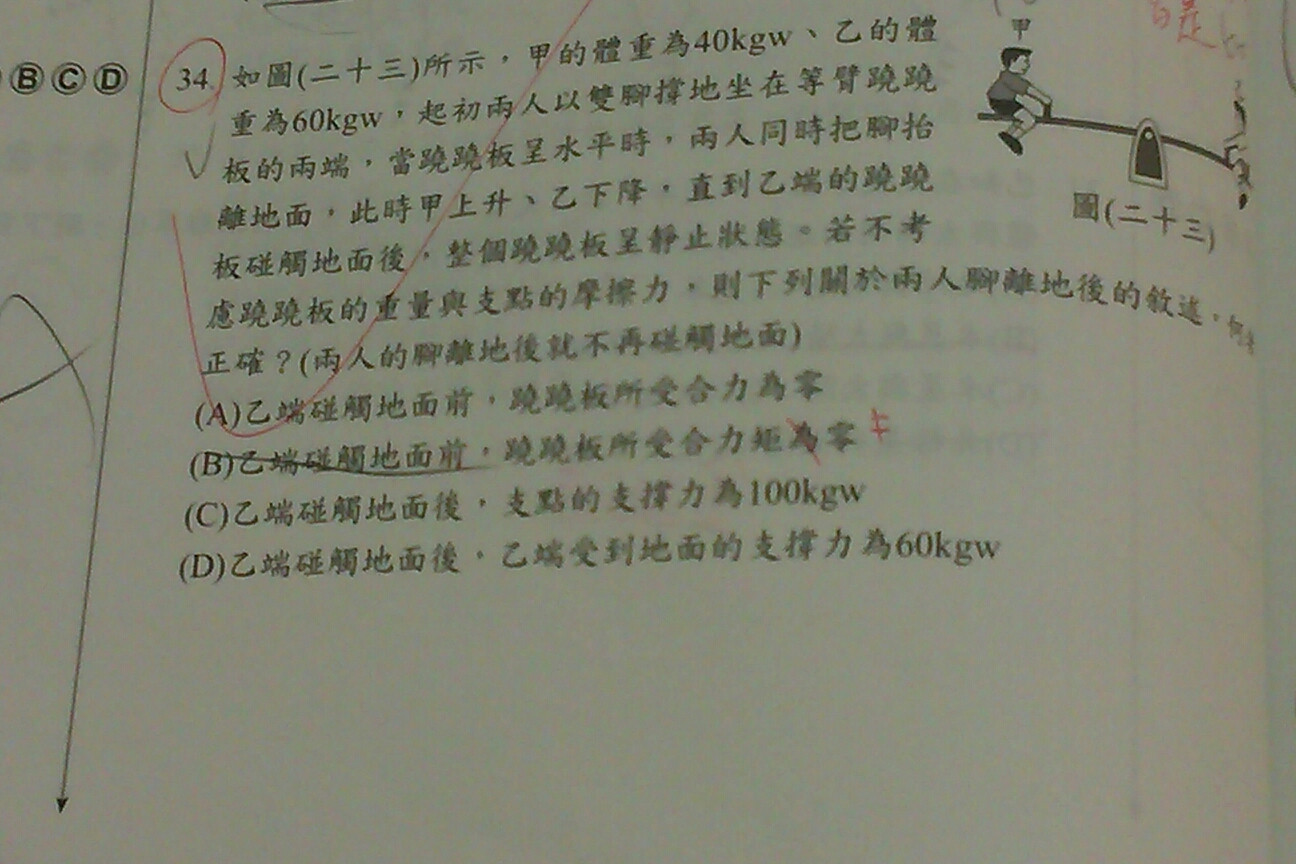 甲
ⒷⒸⒹ
34. 如圖(二十三)所示，甲的體重為40kgw、乙的體
重為60kgw，起初兩人以雙腳撐地坐在等臂蹺蹺
板的兩端，當蹺蹺板呈水平時，兩人同時把腳抬
離地面，此時甲上升、乙下降，直到乙端的蹺蹺
板碰觸地面後，整個蹺蹺板呈靜止狀態。若不考
慮蹺蹺板的重量與支點的摩擦力，則下列關於兩人腳離地後的敘述，何者
正確？(兩人的腳離地後就不再碰觸地面)
(A)乙端碰觸地面前，蹺蹺板所受合力為零
(B)乙端碰觸地面前，蹺蹺板所受合力矩為零 ≠
(C)乙端碰觸地面後，支點的支撐力為100kgw
(D)乙端碰觸地面後，乙端受到地面的支撐力為60kgw
圖(二十三)